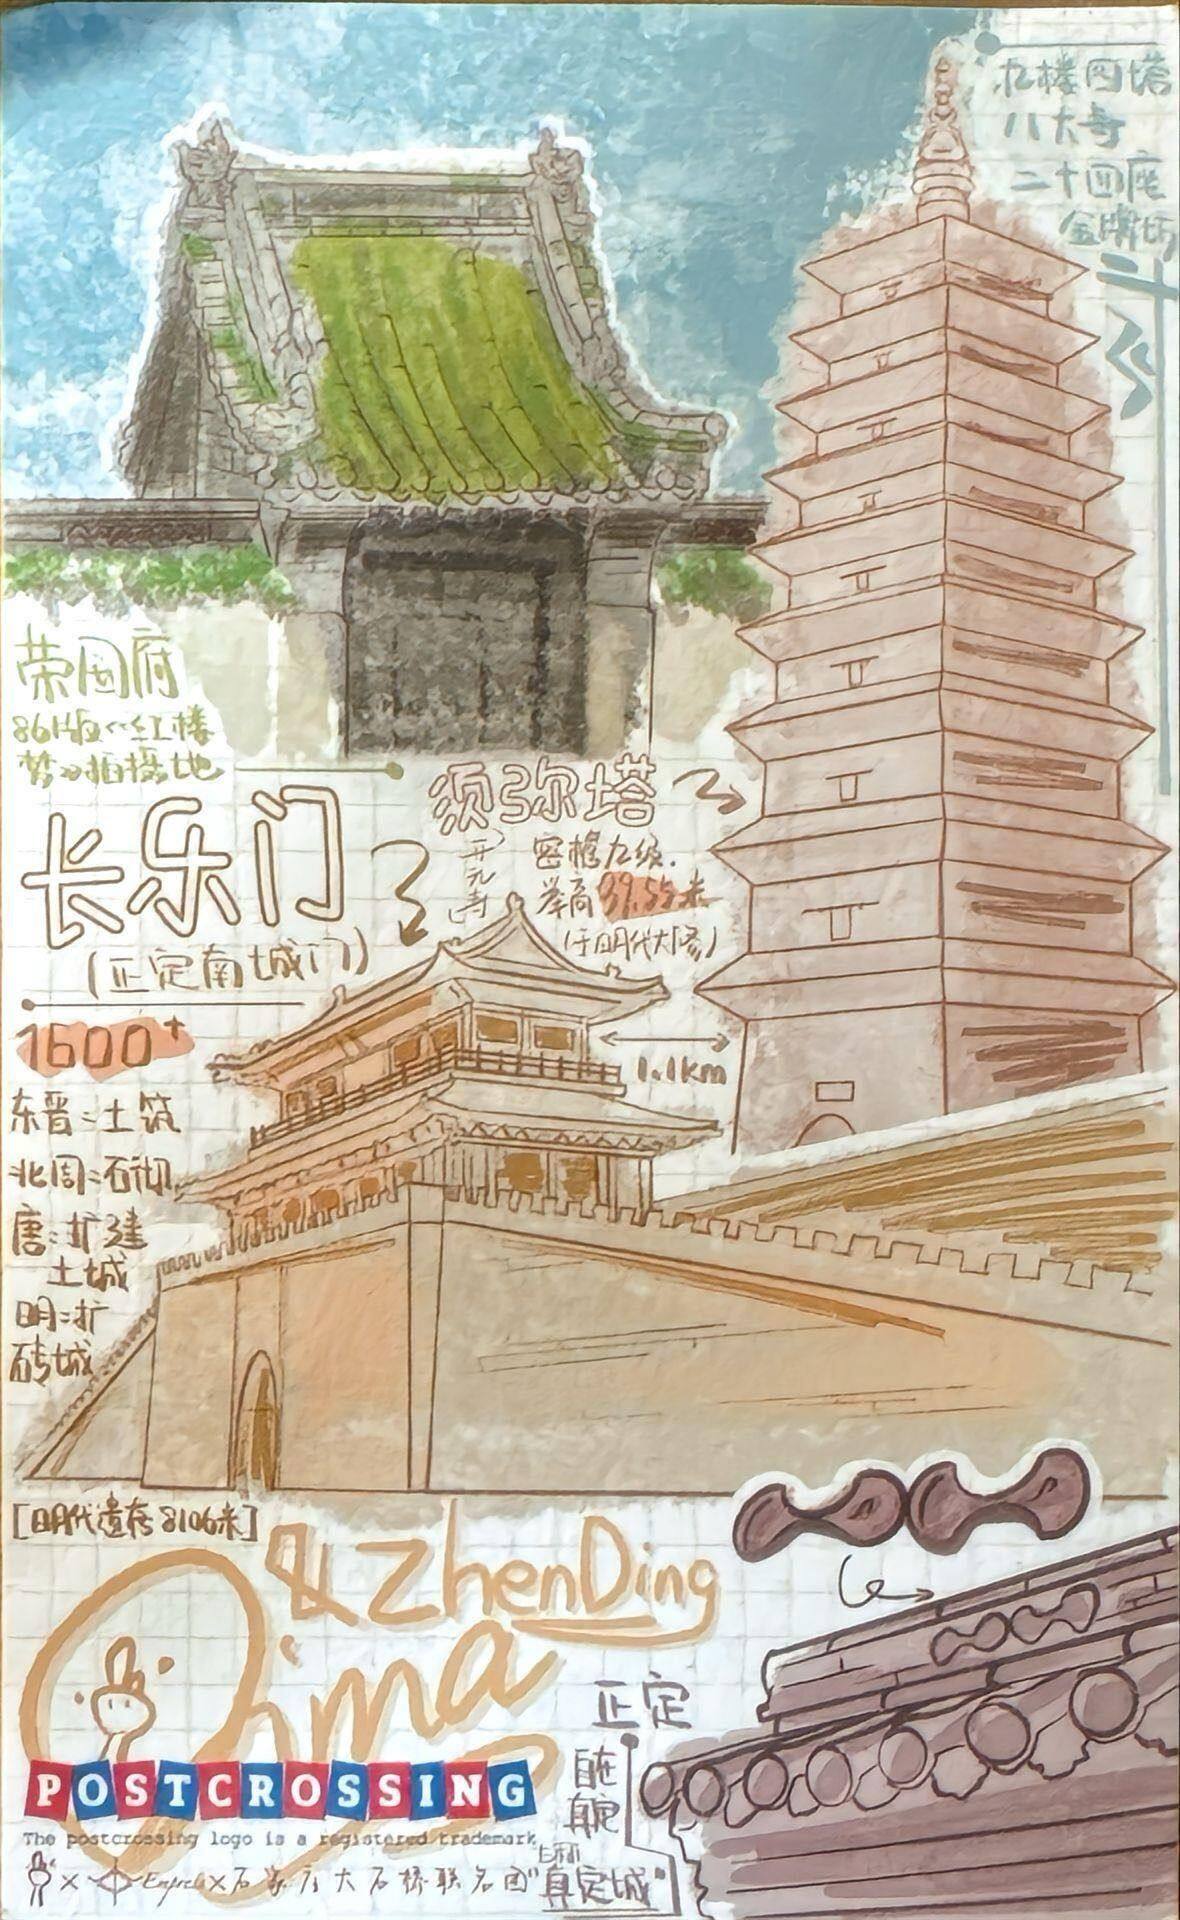 九楼四塔
八大寺
二十四座
金牌坊
荣国府
86版《红楼
梦》拍摄地
须弥塔
开元寺
密檐九级.
举高39.55米
(于明代大修)
长乐门
(正定南城门)
1600+
1.1km
东晋:土筑
北周:石彻
唐:扩建
土城
明:扩
砖城
[明代遗存8106米]
&ZhenDing
Qima
正定
POSTCROSSING
The postcrossing logo is a registered trademark
石家庄大石桥联名团
"真定城"